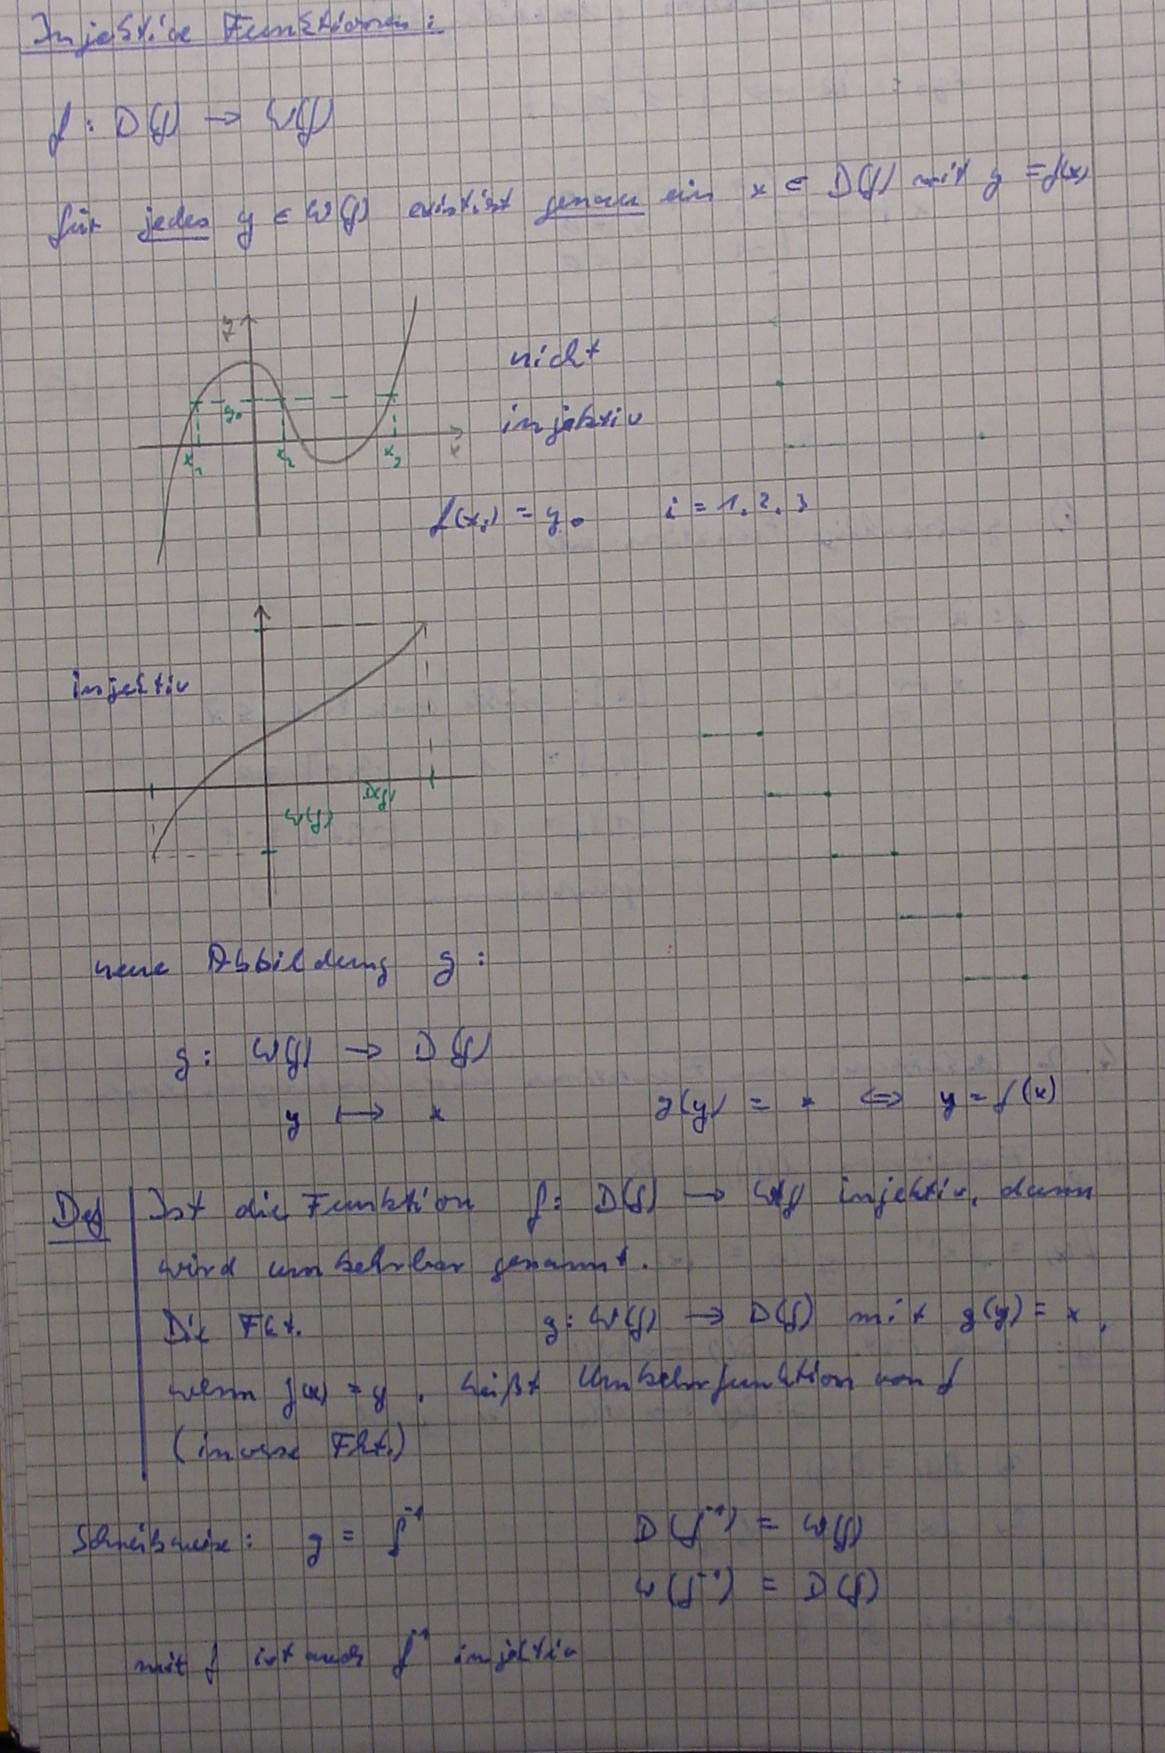 Injektive Funktionen:
f: D(f) → W(f)
für jedes y ∈ W(f) existiert genau ein x ∈ D(f) mit y = f(x)
y
nicht
y₀
injektiv
x₁ x₂ x₃ x
f(xᵢ) = y₀ i = 1, 2, 3
injektiv
D(f)
W(f)
neue Abbildung g:
g: W(f) → D(f)
y ↦ x g(y) = x ⇔ y = f(x)
Def Ist die Funktion f: D(f) → W(f) injektiv, dann
wird umkehrbar genannt.
Die Fkt. g: W(f) → D(f) mit g(y) = x,
wenn f(x) = y, heißt Umkehrfunktion von f
(inverse Fkt.)
Schreibweise: g = f⁻¹ D(f⁻¹) = W(f)
W(f⁻¹) = D(f)
mit f ist auch f⁻¹ injektiv